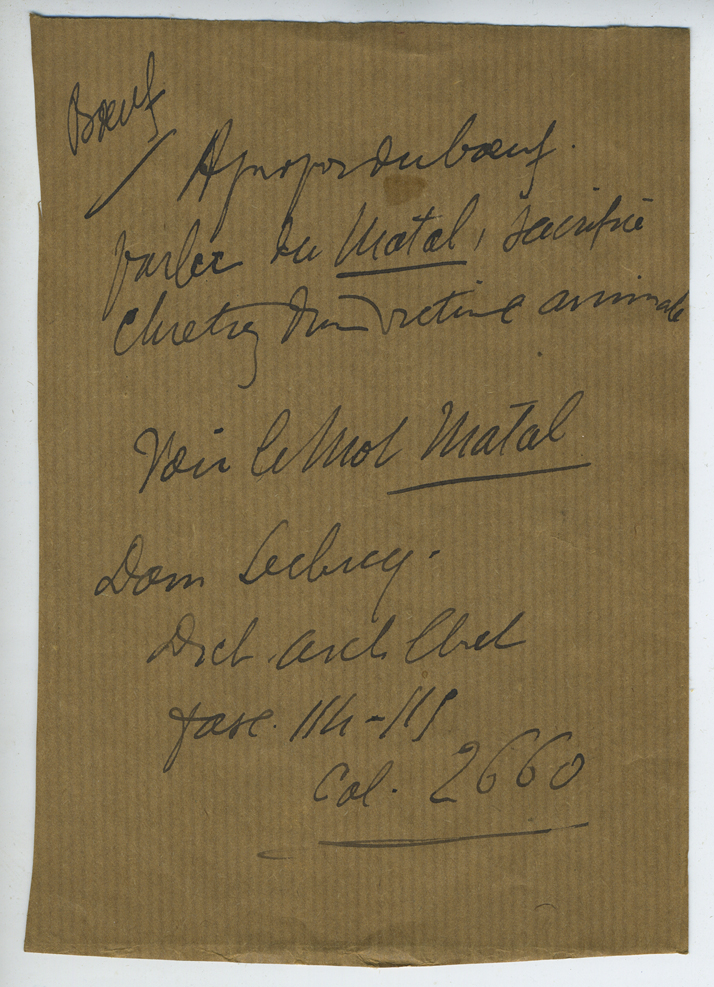 Bœuf
/ A propos du bœuf.
parler du Matal, sacrifice
chretien d'une victime animale
Voir le Mot Matal
Dom Leclercq.
Dict. arch. Chret
fasc. 114-115
Col. 2660